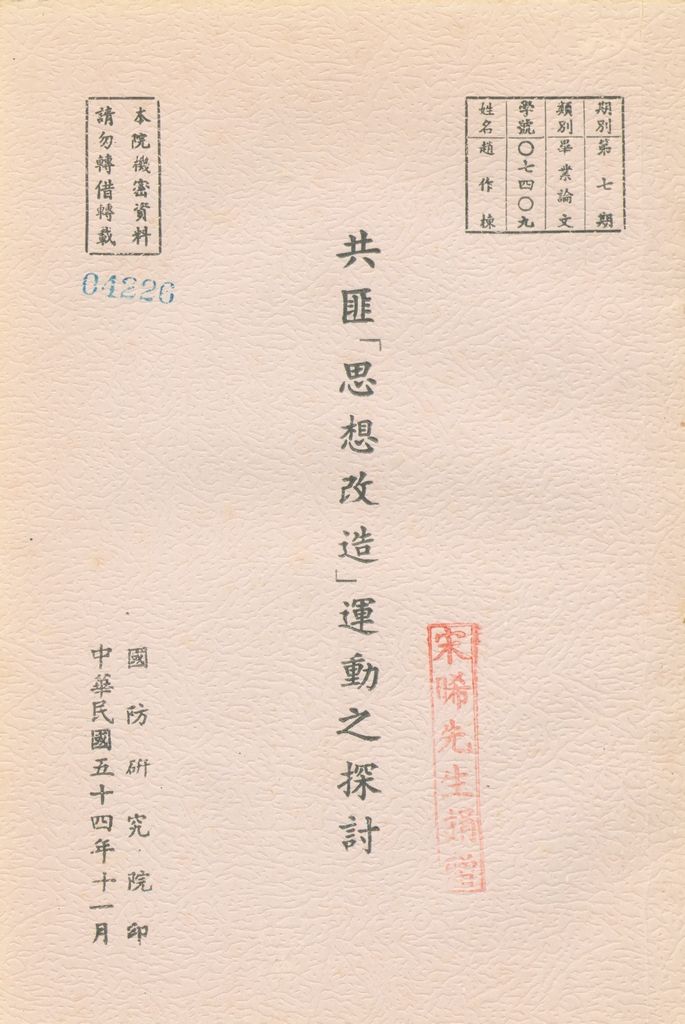 期別第七期
類別畢業論文
學號〇七四〇九
姓名趙作棟
本院機密資料
請勿轉借轉載
04226
共匪「思想改造」運動之探討
宋晞先生捐贈
國防研究院印
中華民國五十四年十一月